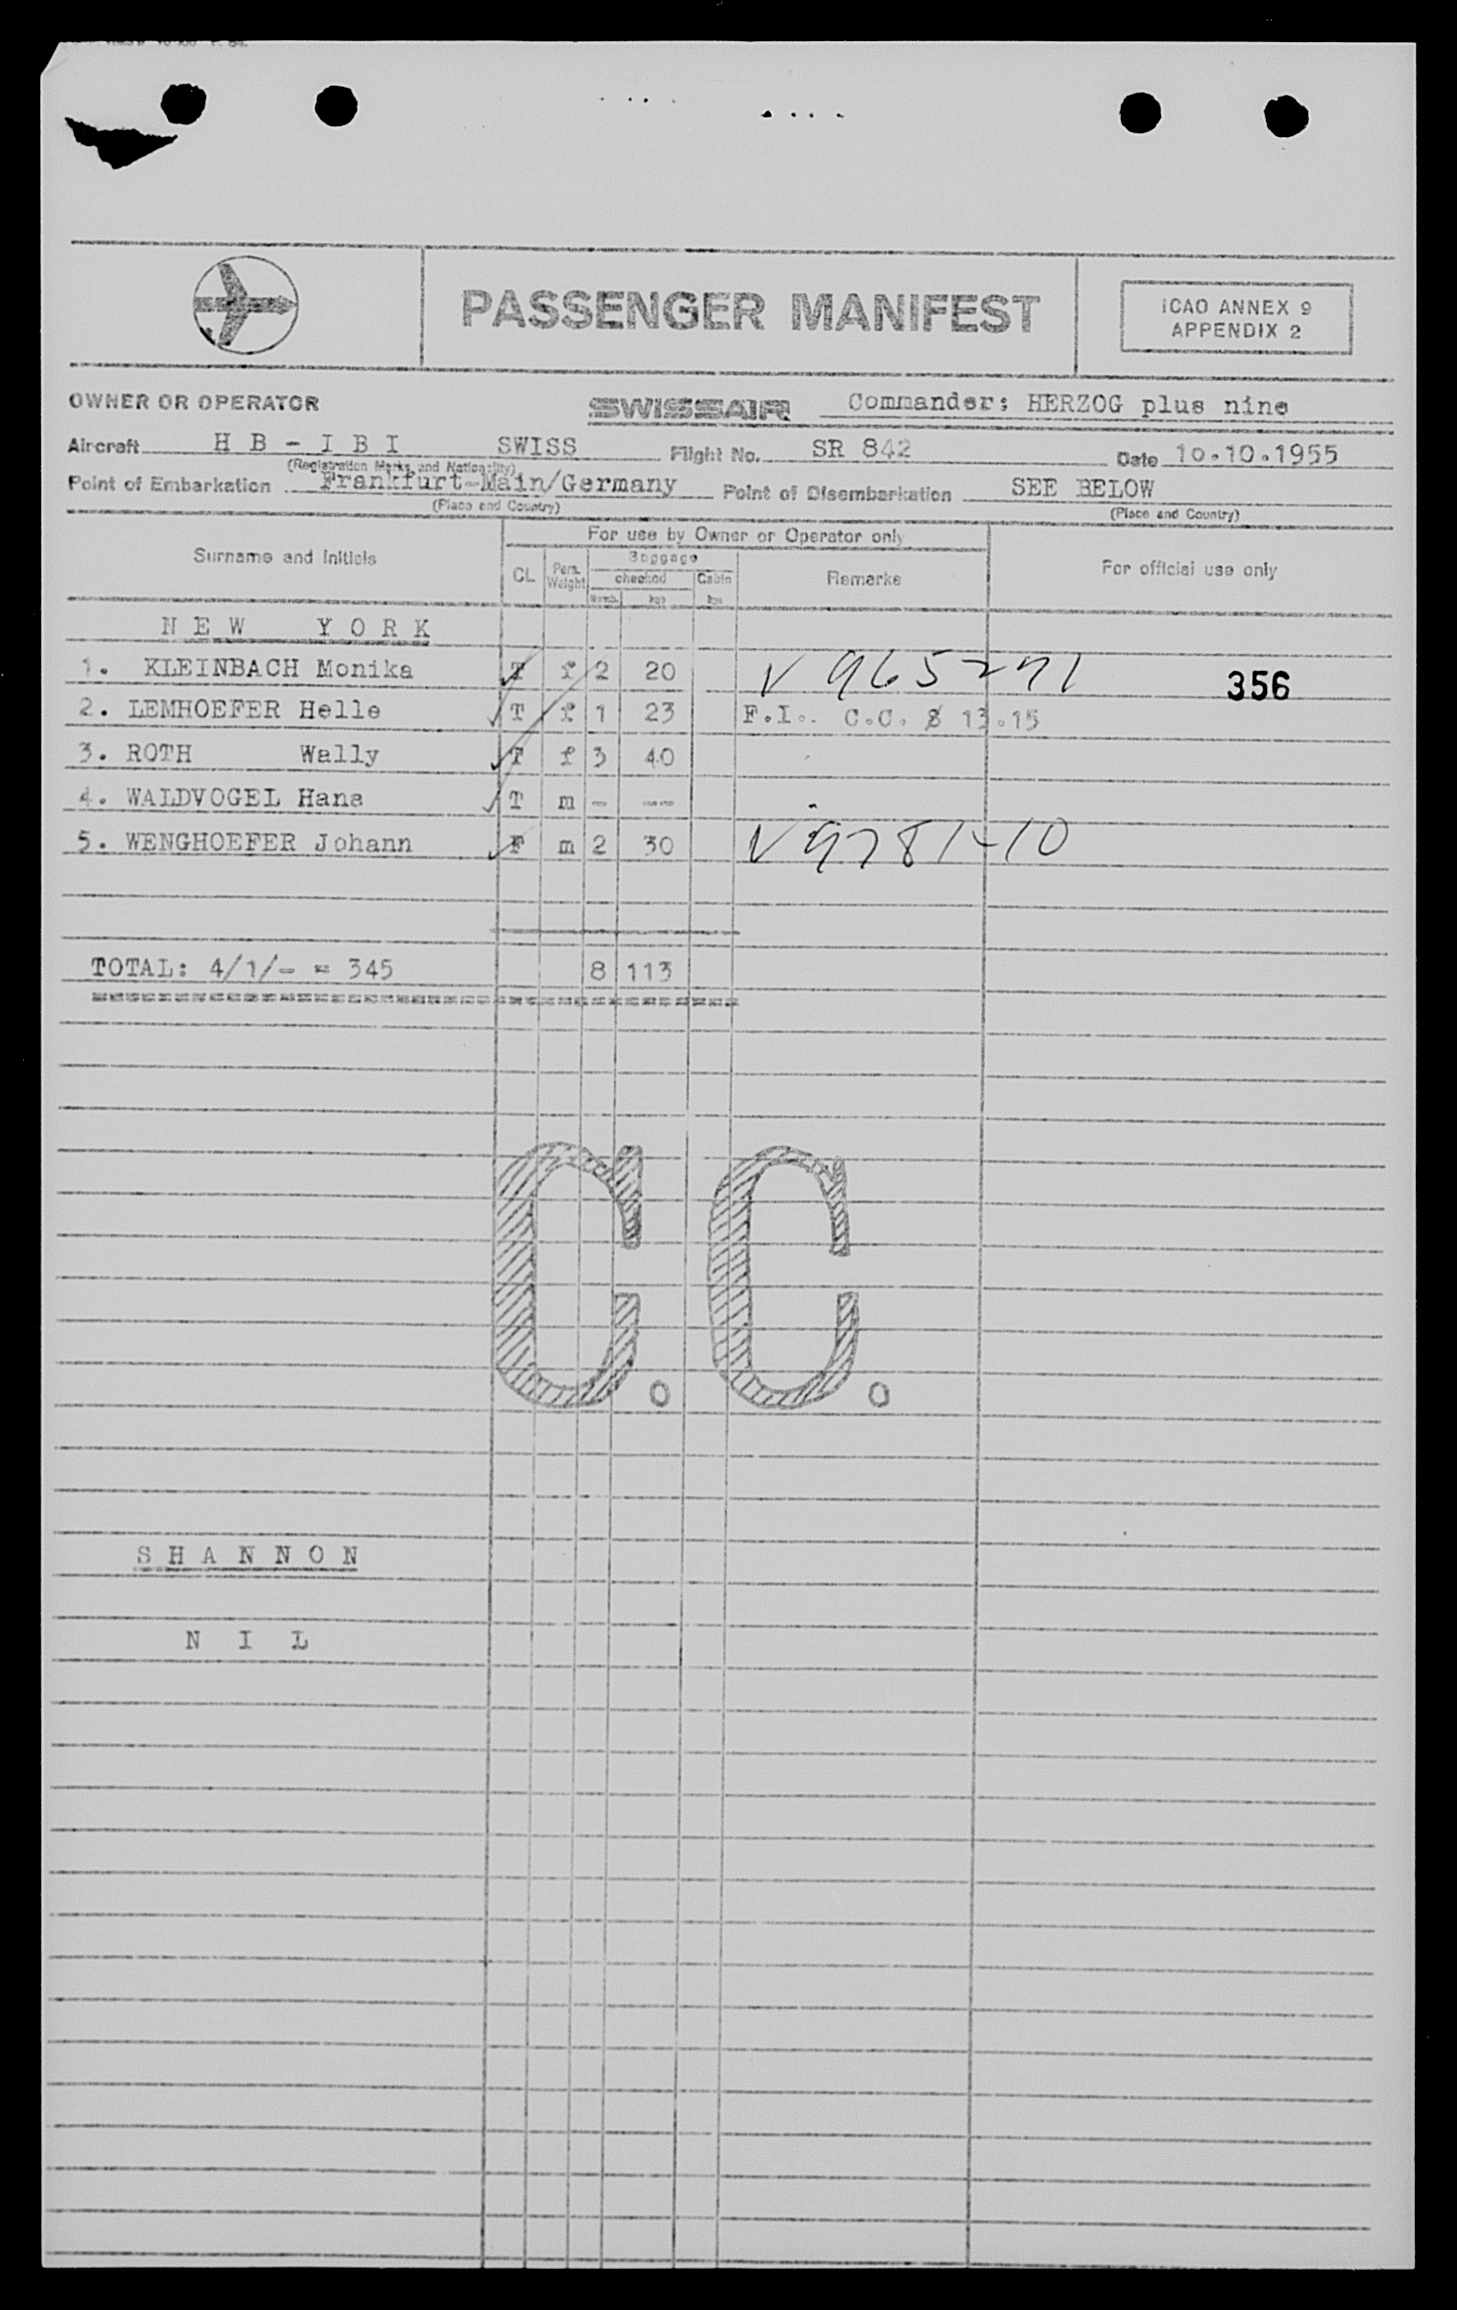 PASSENGER MANIFEST
ICAO ANNEX 9
APPENDIX 2
OWNER OR OPERATOR SWISSAIR Commander: HERZOG plus nine
Aircraft H B - I B I SWISS Flight No. SR 842 Date 10.10.1955
(Registration Marks and Nationality)
Point of Embarkation Frankfurt-Main/Germany Point of Disembarkation SEE BELOW
(Place and Country) (Place and Country)
For use by Owner or Operator only
Surname and initials CL Pers. Weight Baggage Remarks For official use only
checked Cabin
Numb. kgs kgs
N E W Y O R K
1. KLEINBACH Monika T f 2 20 V 965271 356
2. LEMHOEFER Helle T f 1 23 F.I.. C.C. $ 13.15
3. ROTH Wally T f 3 40
4. WALDVOGEL Hans T m - ---
5. WENGHOEFER Johann F m 2 30
TOTAL: 4/1/- = 345 8 113
C.C.
S H A N N O N
N I L